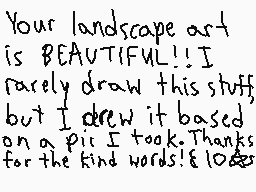 Your landscape art
is BEAUTIFUL!! I
rarely draw this stuff,
but I drew it based
on a pic I took. Thanks
for the kind words! &